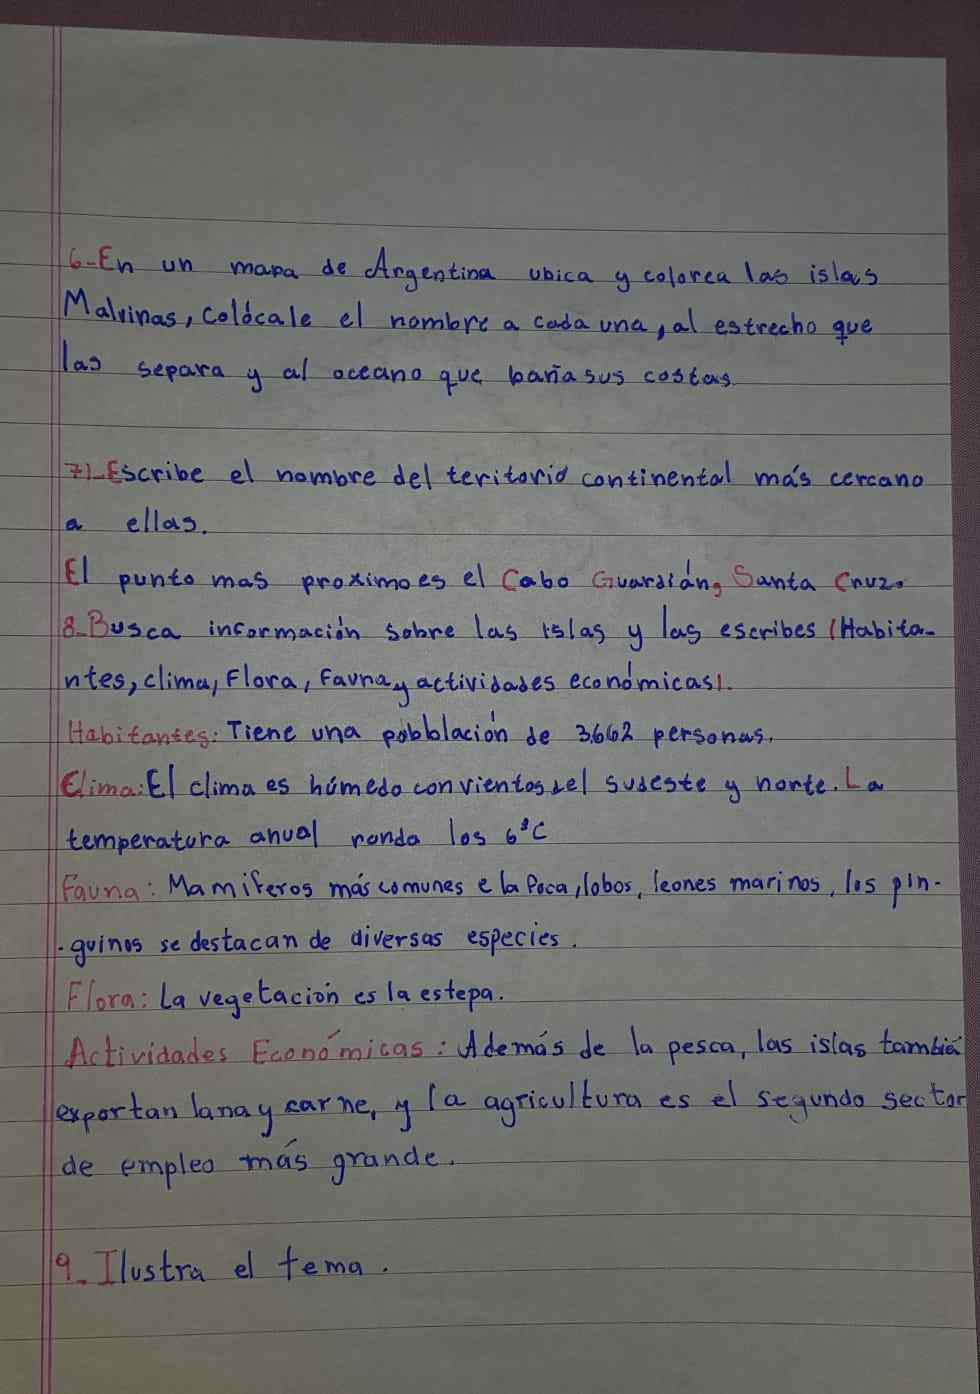 6-En un mapa de Argentina ubica y colorea las islas
Malvinas, Colócale el nombre a cada una, al estrecho que
las separa y al oceano que baña sus costas.
7)-Escribe el nombre del teritorio continental más cercano
a ellas.
El punto mas proximo es el Cabo Guardián, Santa Cruz.
8-Busca información sobre las islas y las escribes (Habita-
ntes, clima, Flora, Fauna y actividades económicas).
Habitantes: Tiene una pobblación de 3.662 personas.
Clima: El clima es húmedo con vientos del sudeste y norte. La
temperatura anual ronda los 6°C
Fauna: Mamiferos más comunes e la foca, lobos, leones marinos, los pin-
-guinos se destacan de diversas especies.
Flora: La vegetación es la estepa.
Actividades Económicas: Además de la pesca, las islas tambié
exportan lana y carne, y la agricultura es el segundo sector
de empleo más grande.
9-Ilustra el tema.